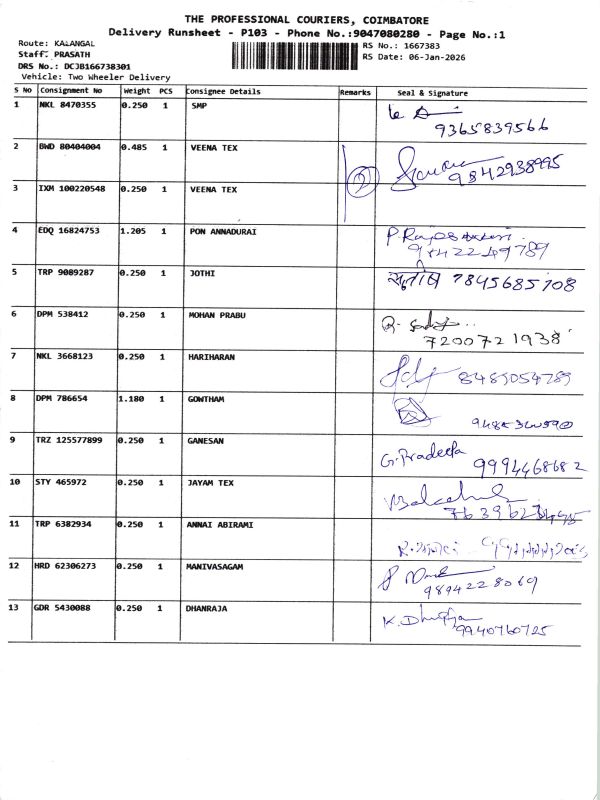 THE PROFESSIONAL COURIERS, COIMBATORE
Delivery Runsheet - P103 - Phone No.:9047080280 - Page No.:1
Route: KALANGAL
RS No.: 1667383
Staff: PRASATH
RS Date: 06-Jan-2026
DRS No.: DCJB166738301
Vehicle: Two Wheeler Delivery
S No Consignment No Weight PCS Consignee Details Remarks Seal & Signature
1 NKL 8470355 0.250 1 SMP
9365839566
2 BWD 80404004 0.485 1 VEENA TEX 2
9842938995
3 IXM 100220548 0.250 1 VEENA TEX
4 EDQ 16824753 1.205 1 PON ANNADURAI
9842249789
5 TRP 9089287 0.250 1 JOTHI 7845685708
6 DPM 538412 0.250 1 MOHAN PRABU
7200721938
7 NKL 3668123 0.250 1 HARIHARAN 8489054789
8 DPM 786654 1.180 1 GOWTHAM
9 TRZ 125577899 0.250 1 GANESAN G.Pradeepa
9994468682
10 STY 465972 0.250 1 JAYAM TEX
11 TRP 6382934 0.250 1 ANNAI ABIRAMI
12 HRD 62306273 0.250 1 MANIVASAGAM
9894228069
13 GDR 5430088 0.250 1 DHANRAJA
9940760725